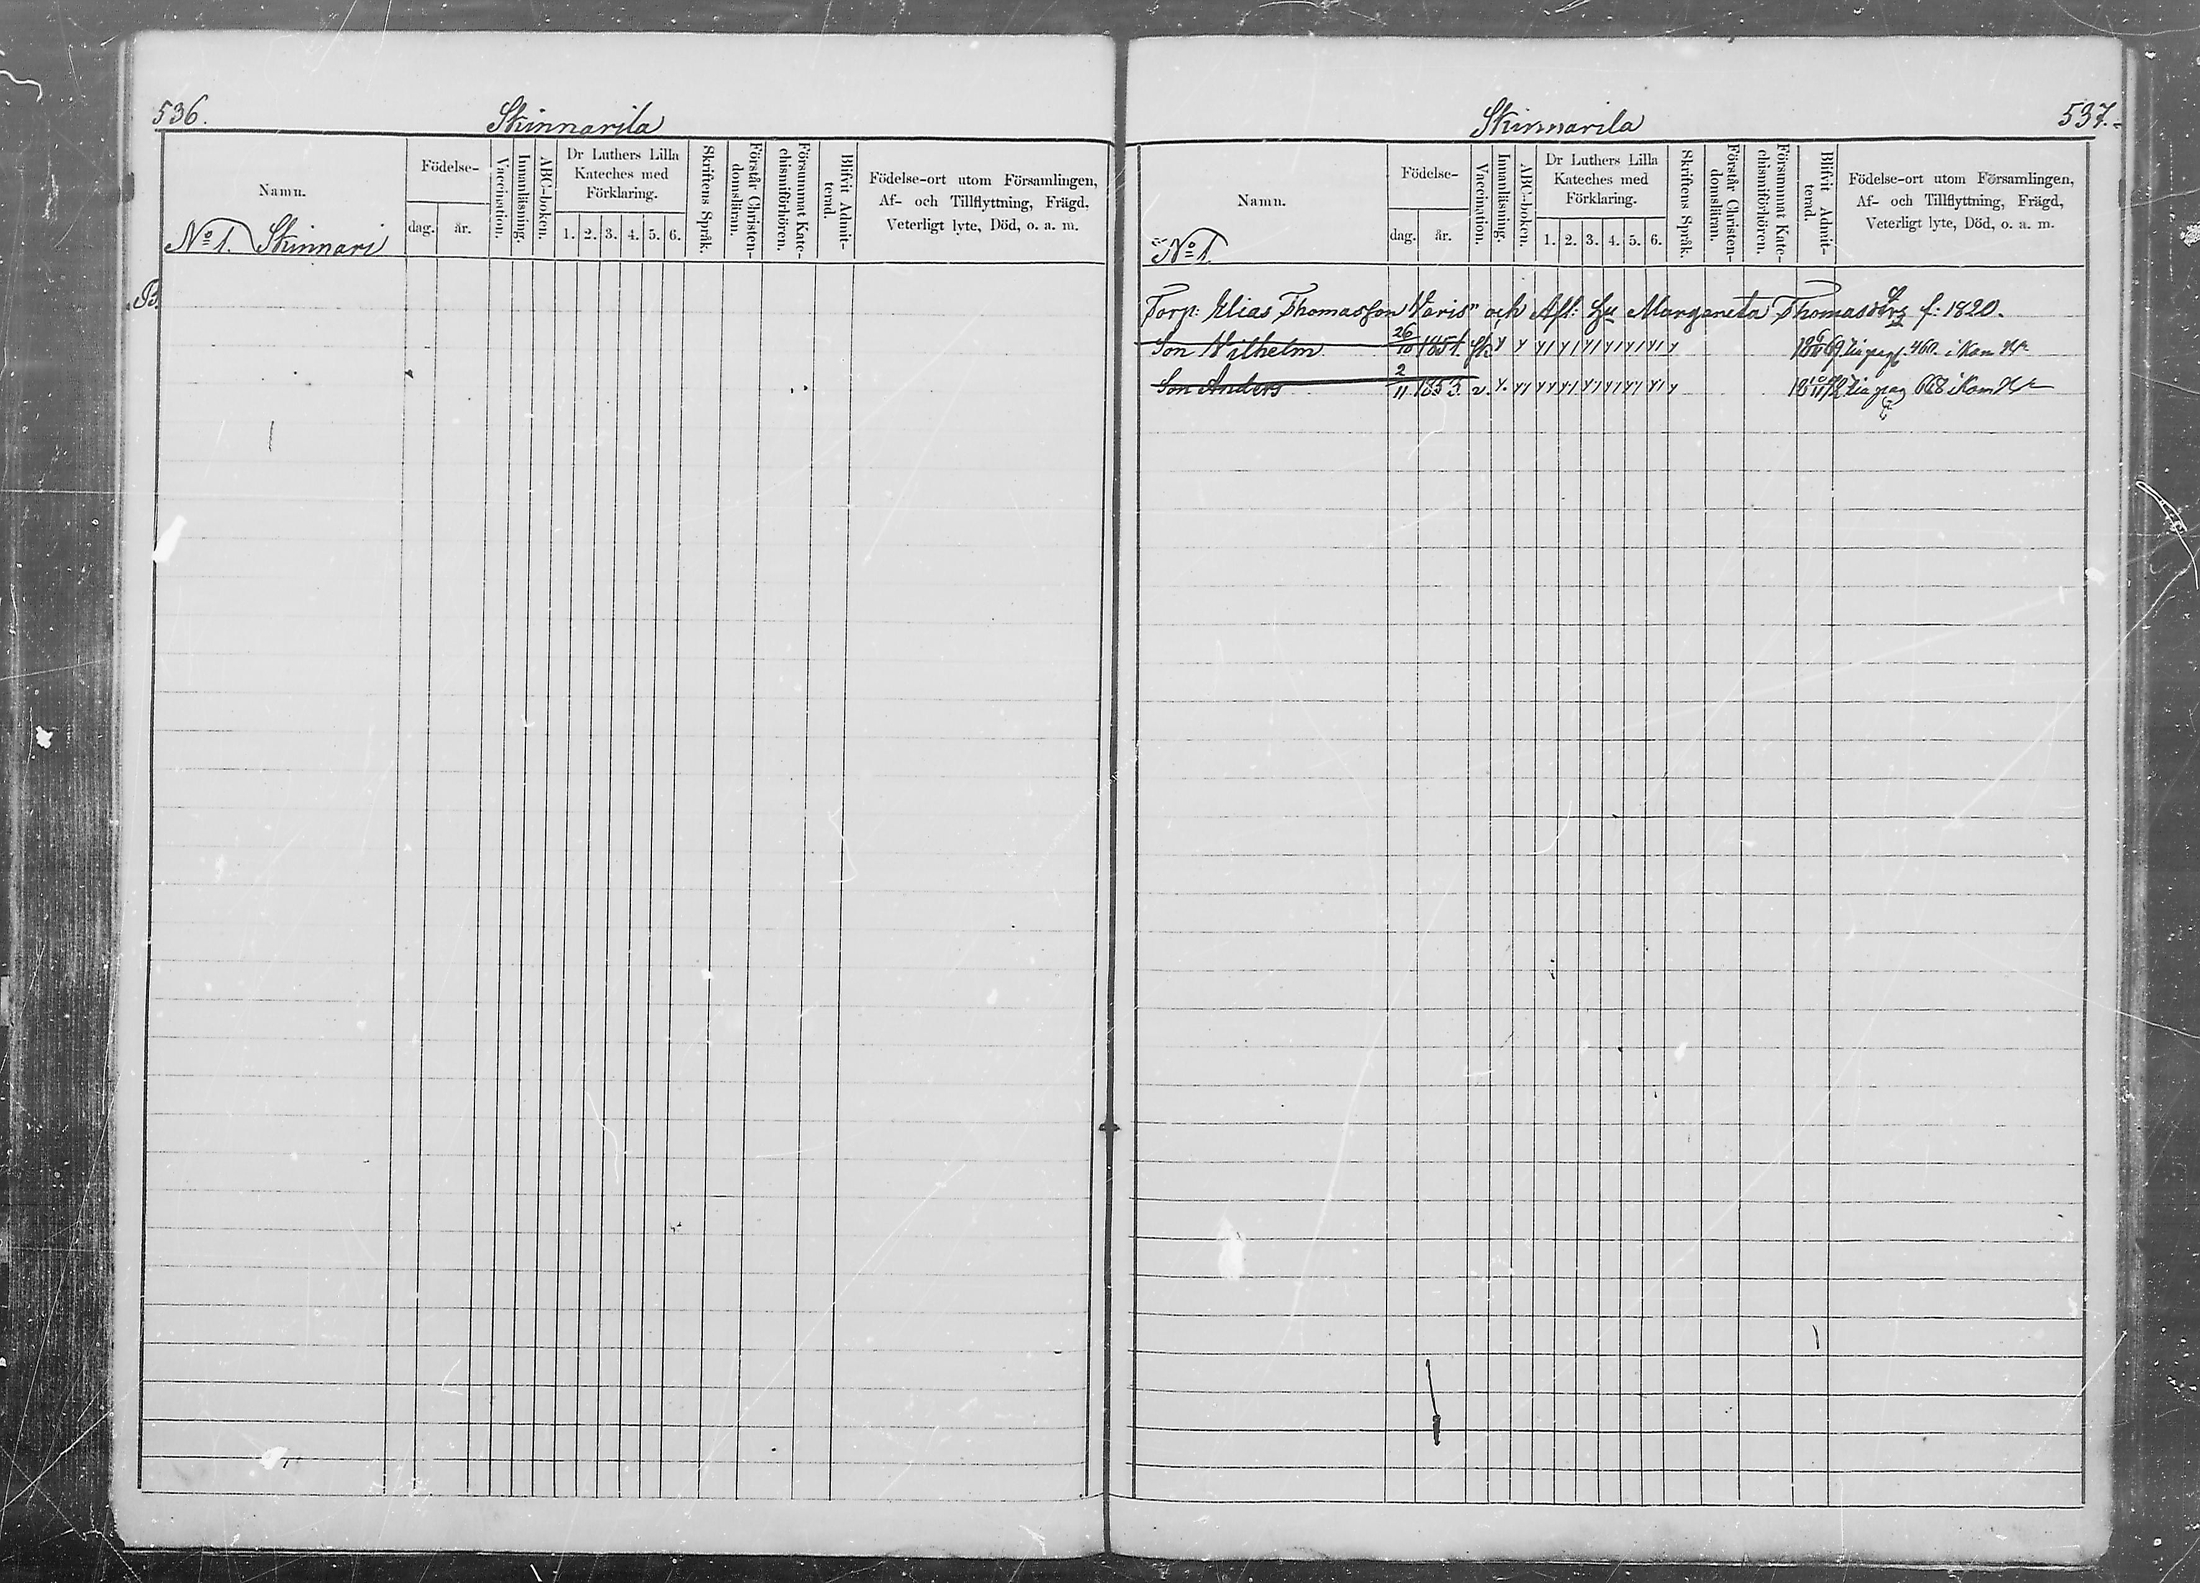 536.
Skinnarila
Namn.
Födelse-
dag.
år.
Vaccination.
Innanläsning.
ABC-boken.
Dr Luthers Lilla
Kateches med
Förklaring.
1. 2. 3. 4. 5. 6.
Skriftens Språk.
Förstår Christen-
domsläran.
Försummat Kate-
chismiförhören.
Blifvit Admit-
terad.
Födelse-ort utom Församlingen,
Af- och Tillflyttning, Frägd,
Veterligt lyte, Död, o. a. m.
No 1. Skinnari
Skinnarila
537.
Namn.
Födelse-
dag.
år.
Vaccination.
Innanläsning.
ABC-boken.
Dr Luthers Lilla
Kateches med
Förklaring.
1. 2. 3. 4. 5. 6.
Skriftens Språk.
Förstår Christen-
domsläran.
Försummat Kate-
chismiförhören.
Blifvit Admit-
terad.
Födelse-ort utom Församlingen,
Af- och Tillflyttning, Frägd,
Veterligt lyte, Död, o. a. m.
No 1.
Torp: Elias Thomasson Varis och Afl: Hu Margareta Thomasdtrs f: 1820.
Son Wilhelm 26/10 1851.
Son Anders 2/11 1853. v.